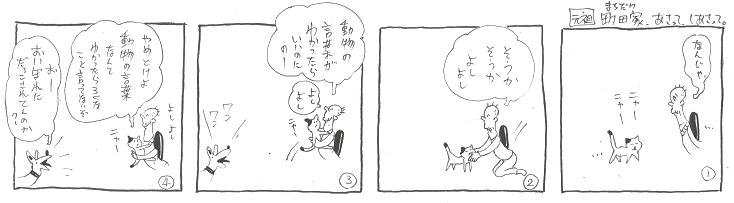 元祖 町田家、あさって、しあさって。
なんじゃ。
ニャー
ニャー
①
そうか
そうか
よし
よし
②
動物の
言葉が
わかったら
いいのに
のー
よし
よし
ニャー
ワン
ワン
③
よし
よし
やめとけよ
動物の言葉
なんて
わかったらろくな
こと言ってないぞ
ニャー
おー
おいぼれに
だっこされてんのか
④